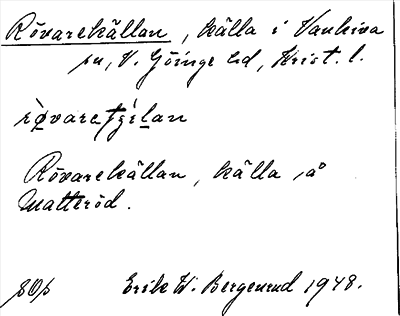 Rövarekällan, källa i Vankiva
sn, V. Göinge hd, Krist. l.
Rövarekällan, källa på
Matteröd.
Erik W. Bergenrud 1948.